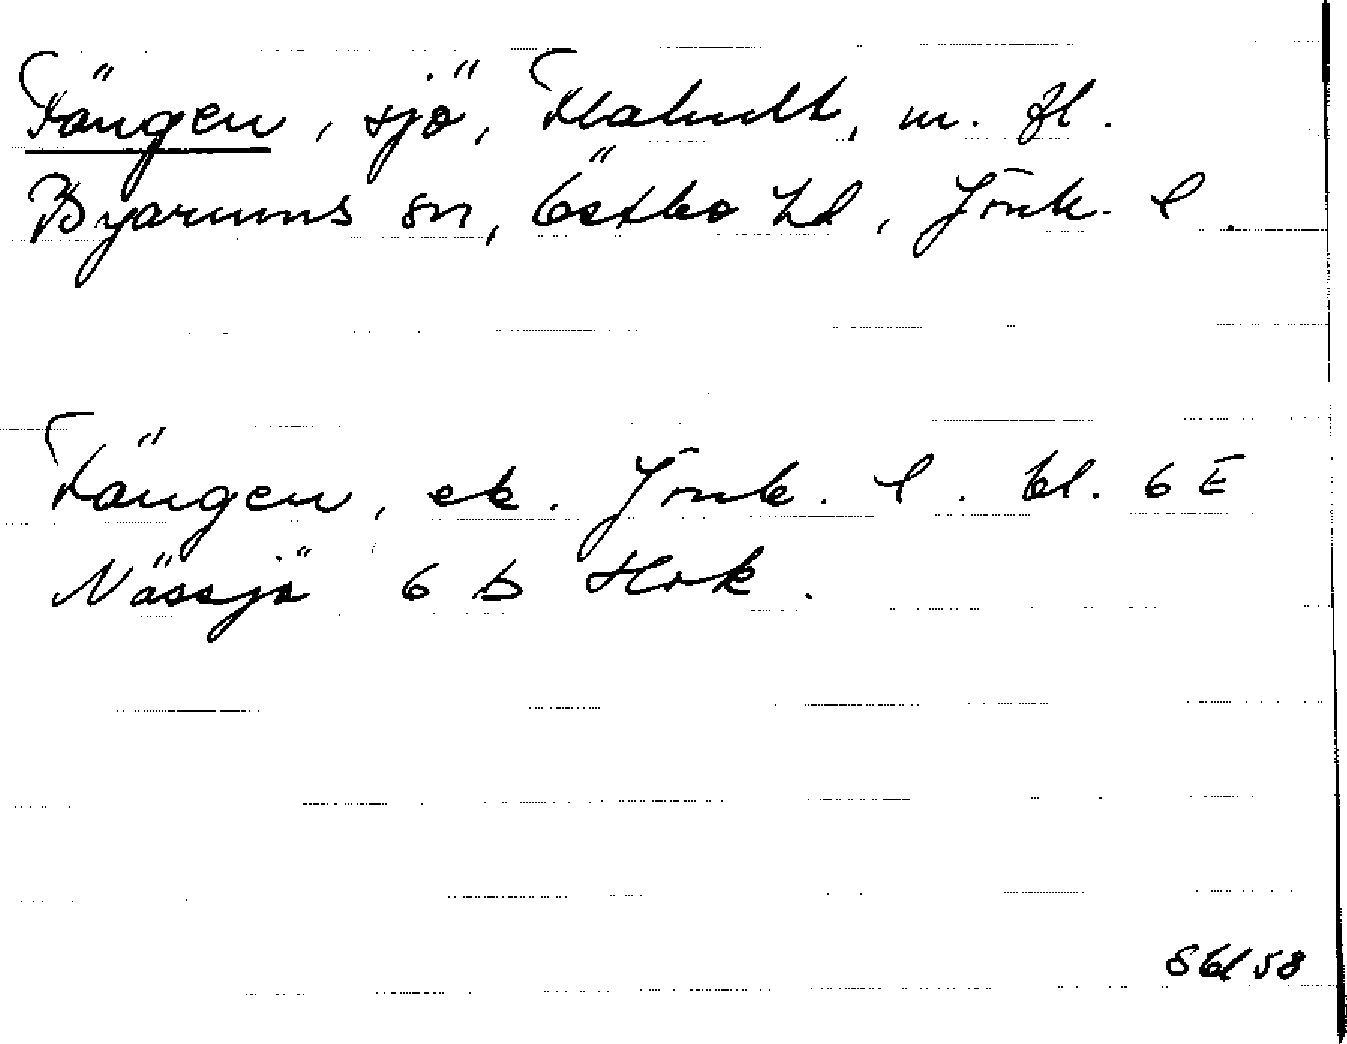 Fängen, sjö, Flahult, m. fl.
Byarums sn, Östbo hd, Jönk. l.
Fängen, ek. Jönk. l. bl. 6 E
Nässjö 6 D Hok.
Sbl 58